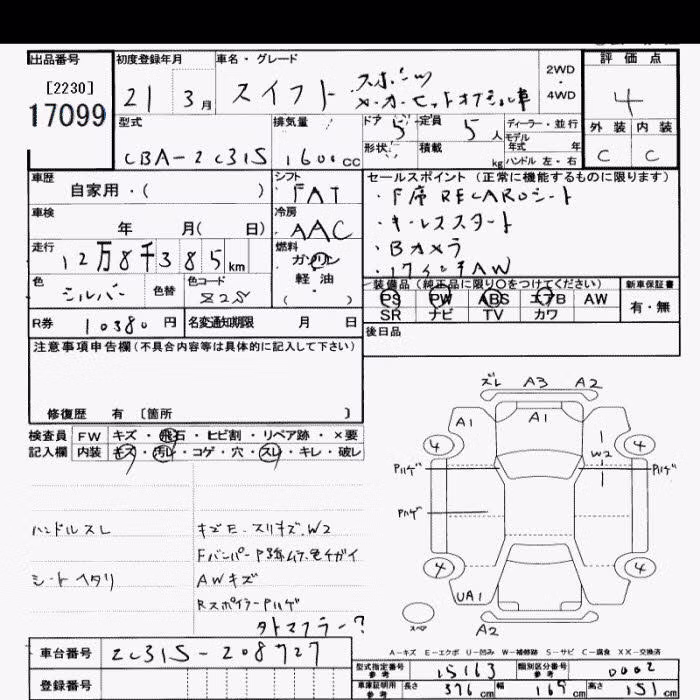 出品番号
[2230]
17099
初度登録年月
21 3月
車名・グレード
スイフト スポーツ
メーカーセットオプション車
2WD
・
4WD
評価点
4
外装 内装
C C
型式
CBA-ZC31S
排気量
1600cc
ドア 5 定員 5人
形状 積載 kg
ディーラー・並行
モデル
年式 年
ハンドル 左・右
車歴
自家用・( )
シフト
FAT
車検
年 月( 日)
冷房
AAC
走行
12万8千385km
燃料
ガソリン
軽油
・
( )
色
シルバー
色替
色コード
Z2S
R券 10380円
名変通知期限 月 日
セールスポイント(正常に機能するものに限ります)
・F席 RECAROシート
・キーレススタート
・Bカメラ
・17インチAW
装備品(純正品に限り○をつけてください)
PS PW ABS エアB AW
SR ナビ TV カワ
新車保証書
有・無
後日品
注意事項申告欄(不具合内容等は具体的に記入して下さい)
修復歴 有 〔箇所 〕
検査員 FW キズ・飛石・ヒビ割・リペア跡・×要
記入欄 内装 キズ・汚レ・コゲ・穴・スレ・キレ・破レ
ハンドルスレ
シートヘタリ
キズE.スリキズ.W2
Fバンパー P跡ムラ.色チガイ
AWキズ
RスポイラーPハゲ
外マフラー?
ズレ A3 A2
A1 A1
4 W2 4
Pハゲ Pハゲ
Pハゲ
4 4
UA1
スペア
A2
A-キズ E-エクボ U-凹み W-補修跡 S-サビ C-腐食 XX-交換済
車台番号 ZC31S-208727
登録番号
型式指定番号
参考
15163
類別区分番号
参考
0002
車庫証明用
参考
長さ 376cm 幅 169cm 高さ 151cm